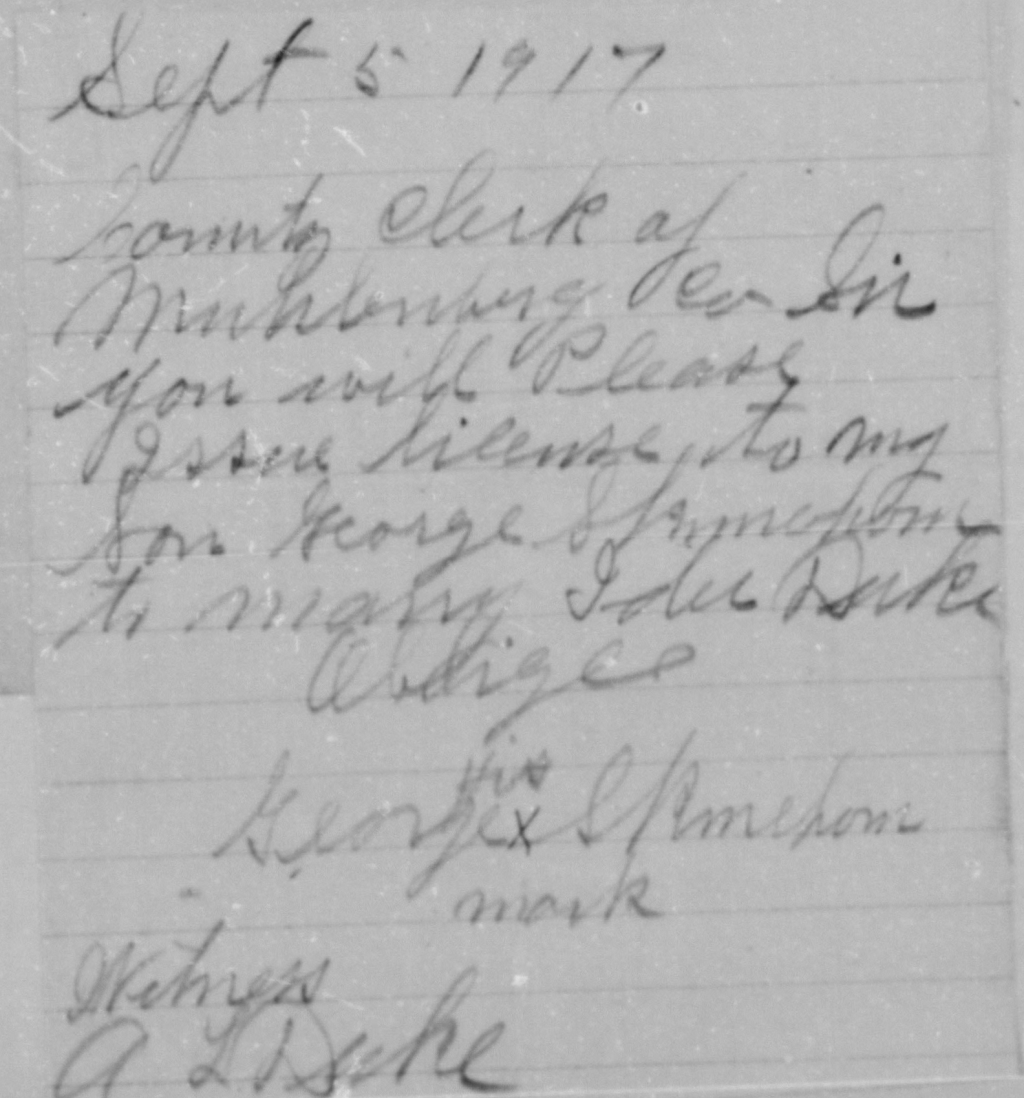 Sept 5 1917
County Clerk of
Muhlenberg Co Sir
you will Please
Issue license to my
Son George
to marry Ider Duke
Oblige
his
George X
mark
Witness
A L Duke